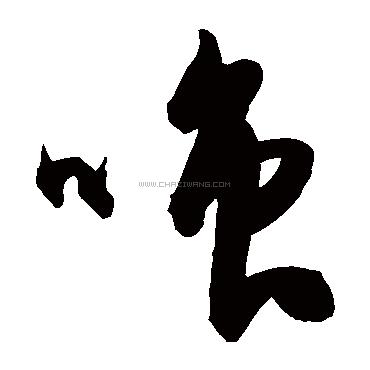 喚
WWW.CHAZIWANG.COM